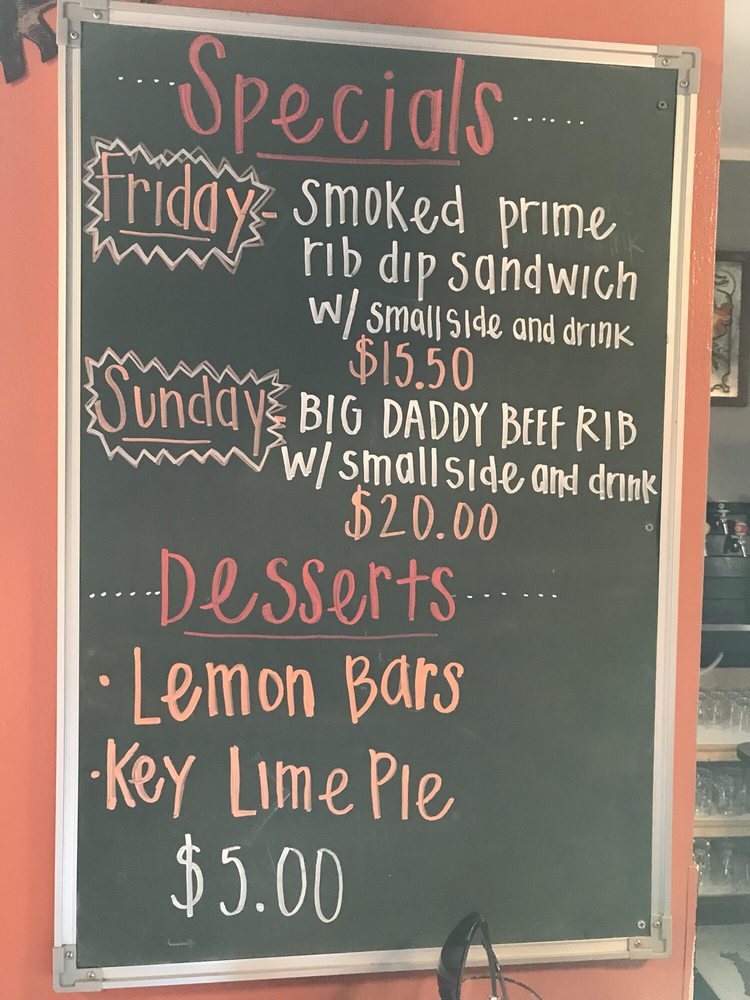 .....Specials......
Friday- smoked prime
rib dip sandwich
w/ small side and drink
$15.50
Sunday- BIG DADDY BEEF RIB
w/ small side and drink
$20.00
......Desserts......
· Lemon Bars
· Key Lime Pie
$5.00